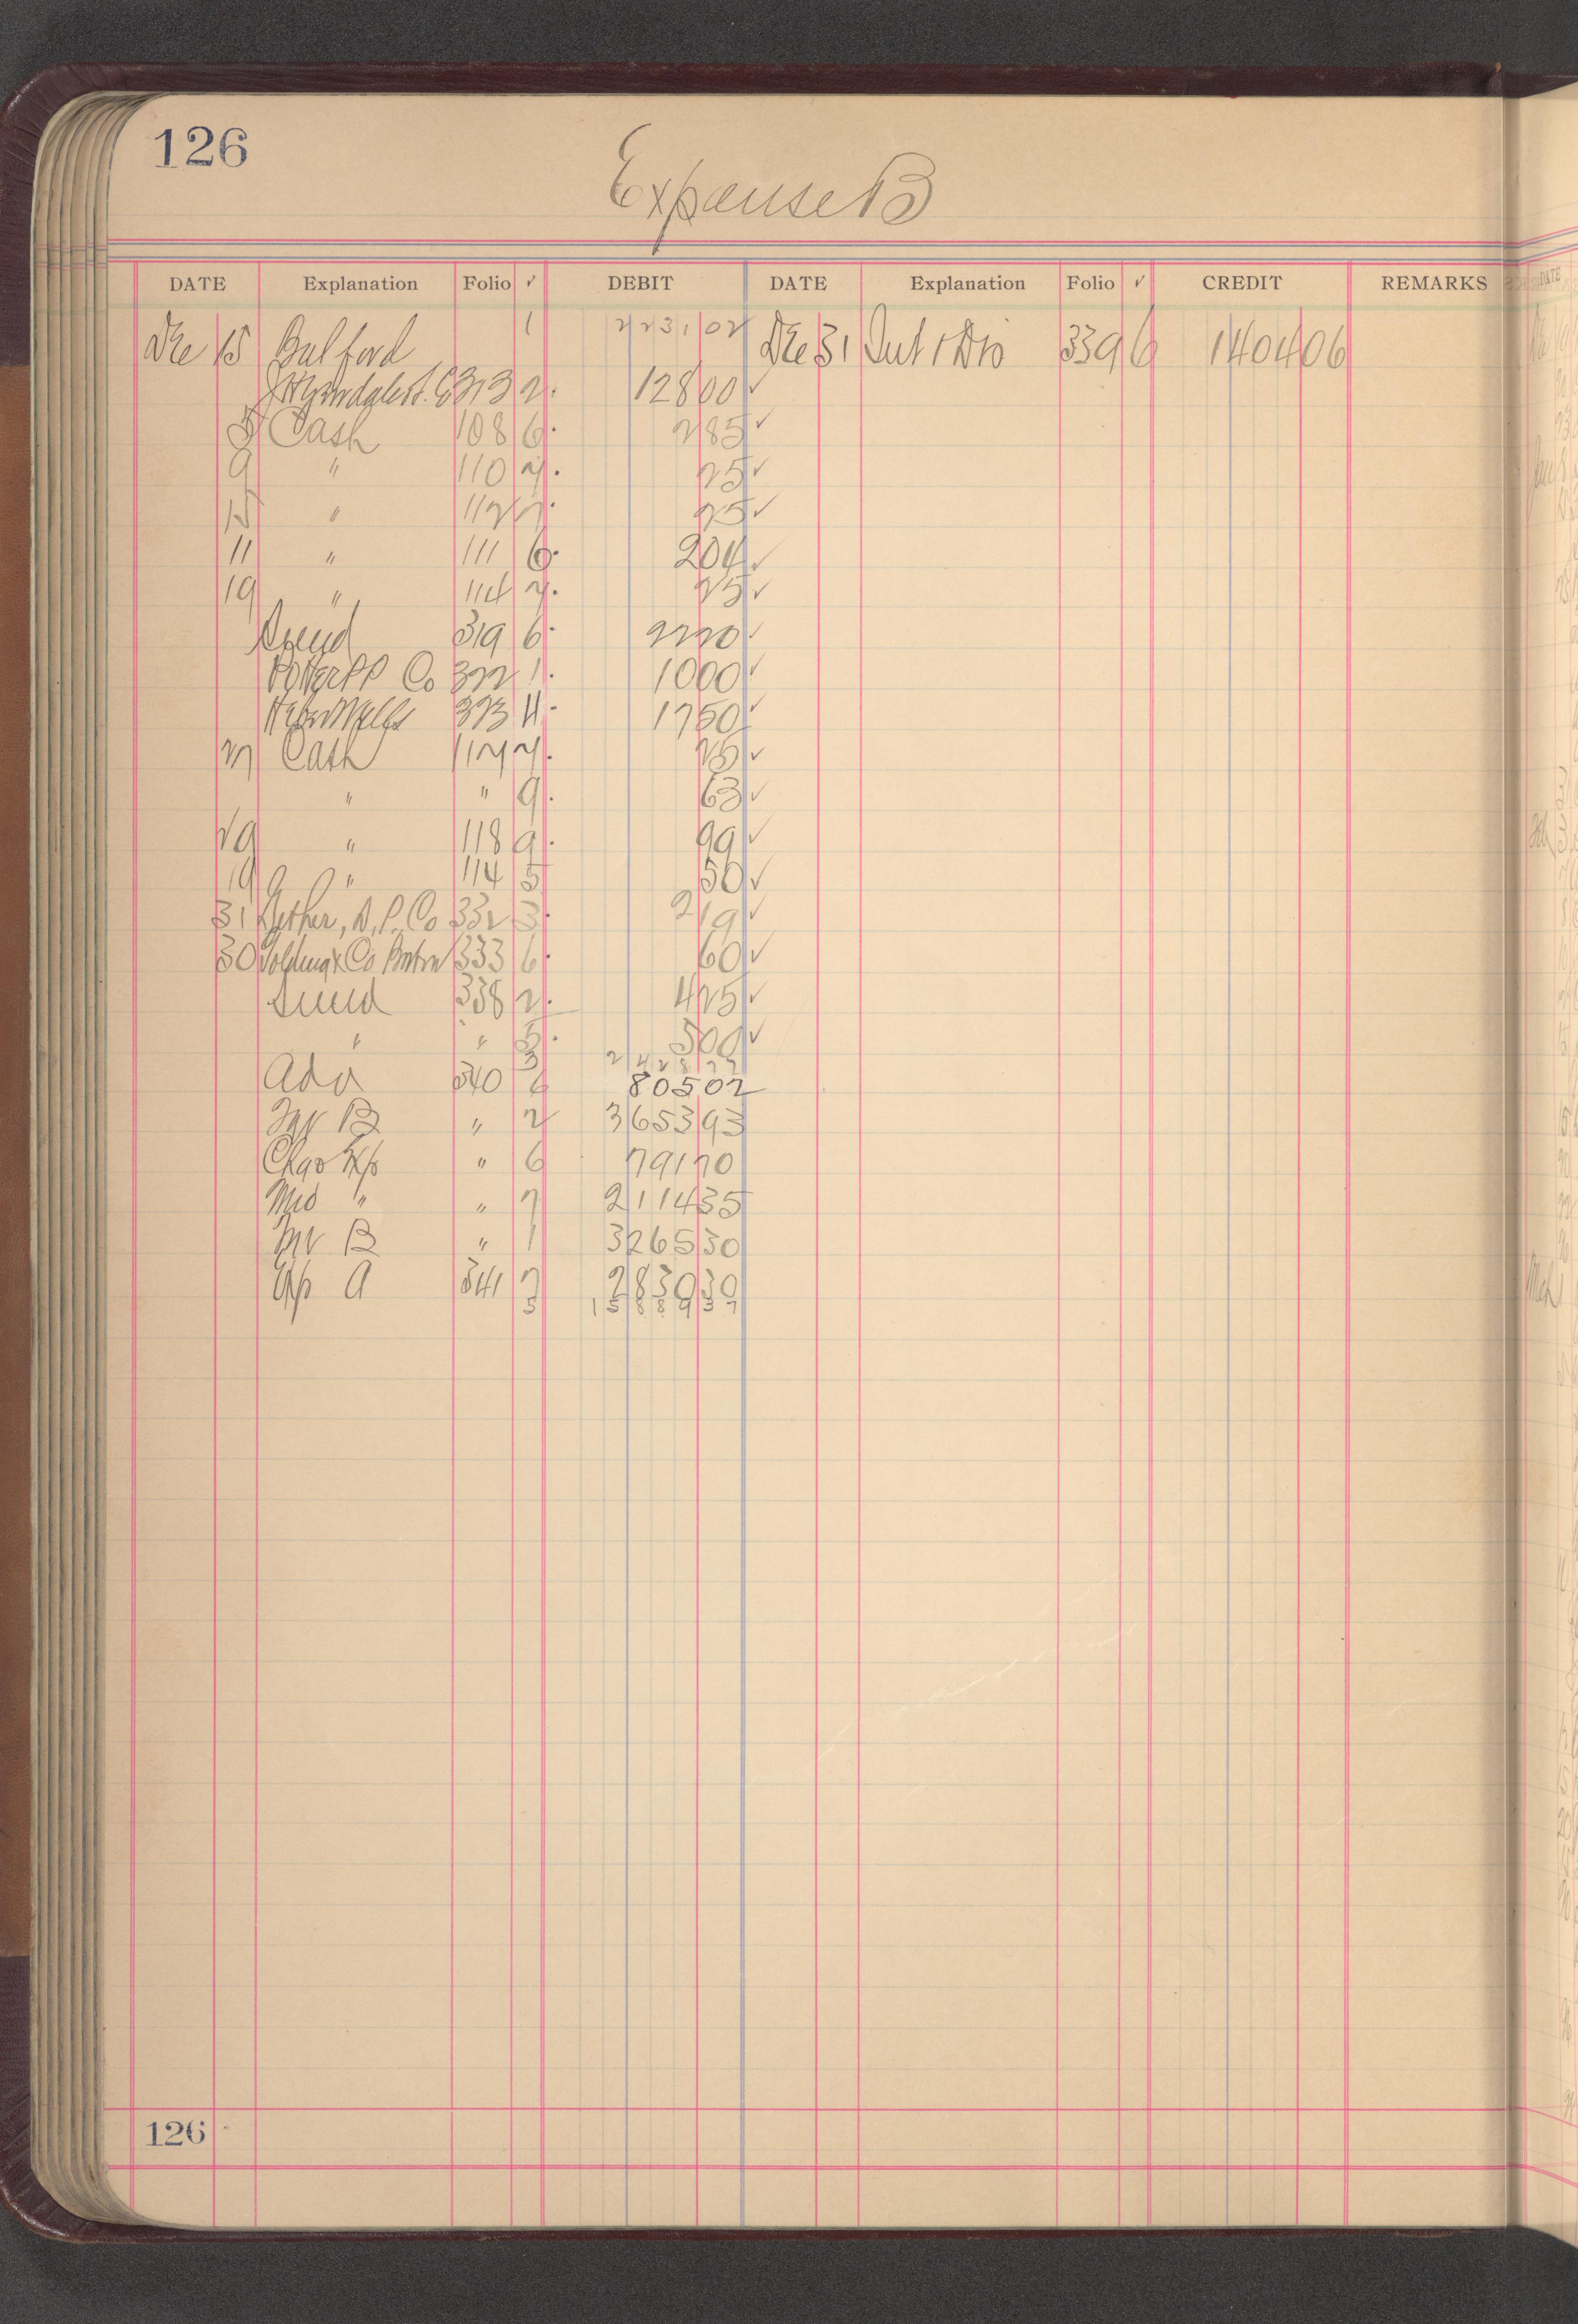 126
Expense B
DATE Explanation Folio ✓ DEBIT DATE Explanation Folio ✓ CREDIT REMARKS
Dec 15 Bal ford 1 2231 02 Dec 31 Int & Dis 339 6 1404 06
313 2 128 00 ✓
5 Cash 108 6 2 85 ✓
9 " 110 7 25 ✓
15 " 112 7 25 ✓
11 " 111 6 2 04 ✓
19 " 114 7 25 ✓
Sund 319 6 22 20 ✓
Co 322 1 10 00 ✓
323 11 17 50 ✓
27 Cash 117 7 25 ✓
" " 9 63 ✓
29 " 118 9 99 ✓
19 " 114 5 50 ✓
31 Co 332 3 2 19 ✓
30 Golding & Co 333 6 60 ✓
Sund 338 2 4 25 ✓
" " 3 5 00 ✓
2428 77
Ada 340 805 02
Inv B " 2 3653 93
Chgo Exp " 6 791 70
Mid " " 7 2114 35
Inv B " 1 3265 30
Exp A 341 7 2830 30
15889 37
126